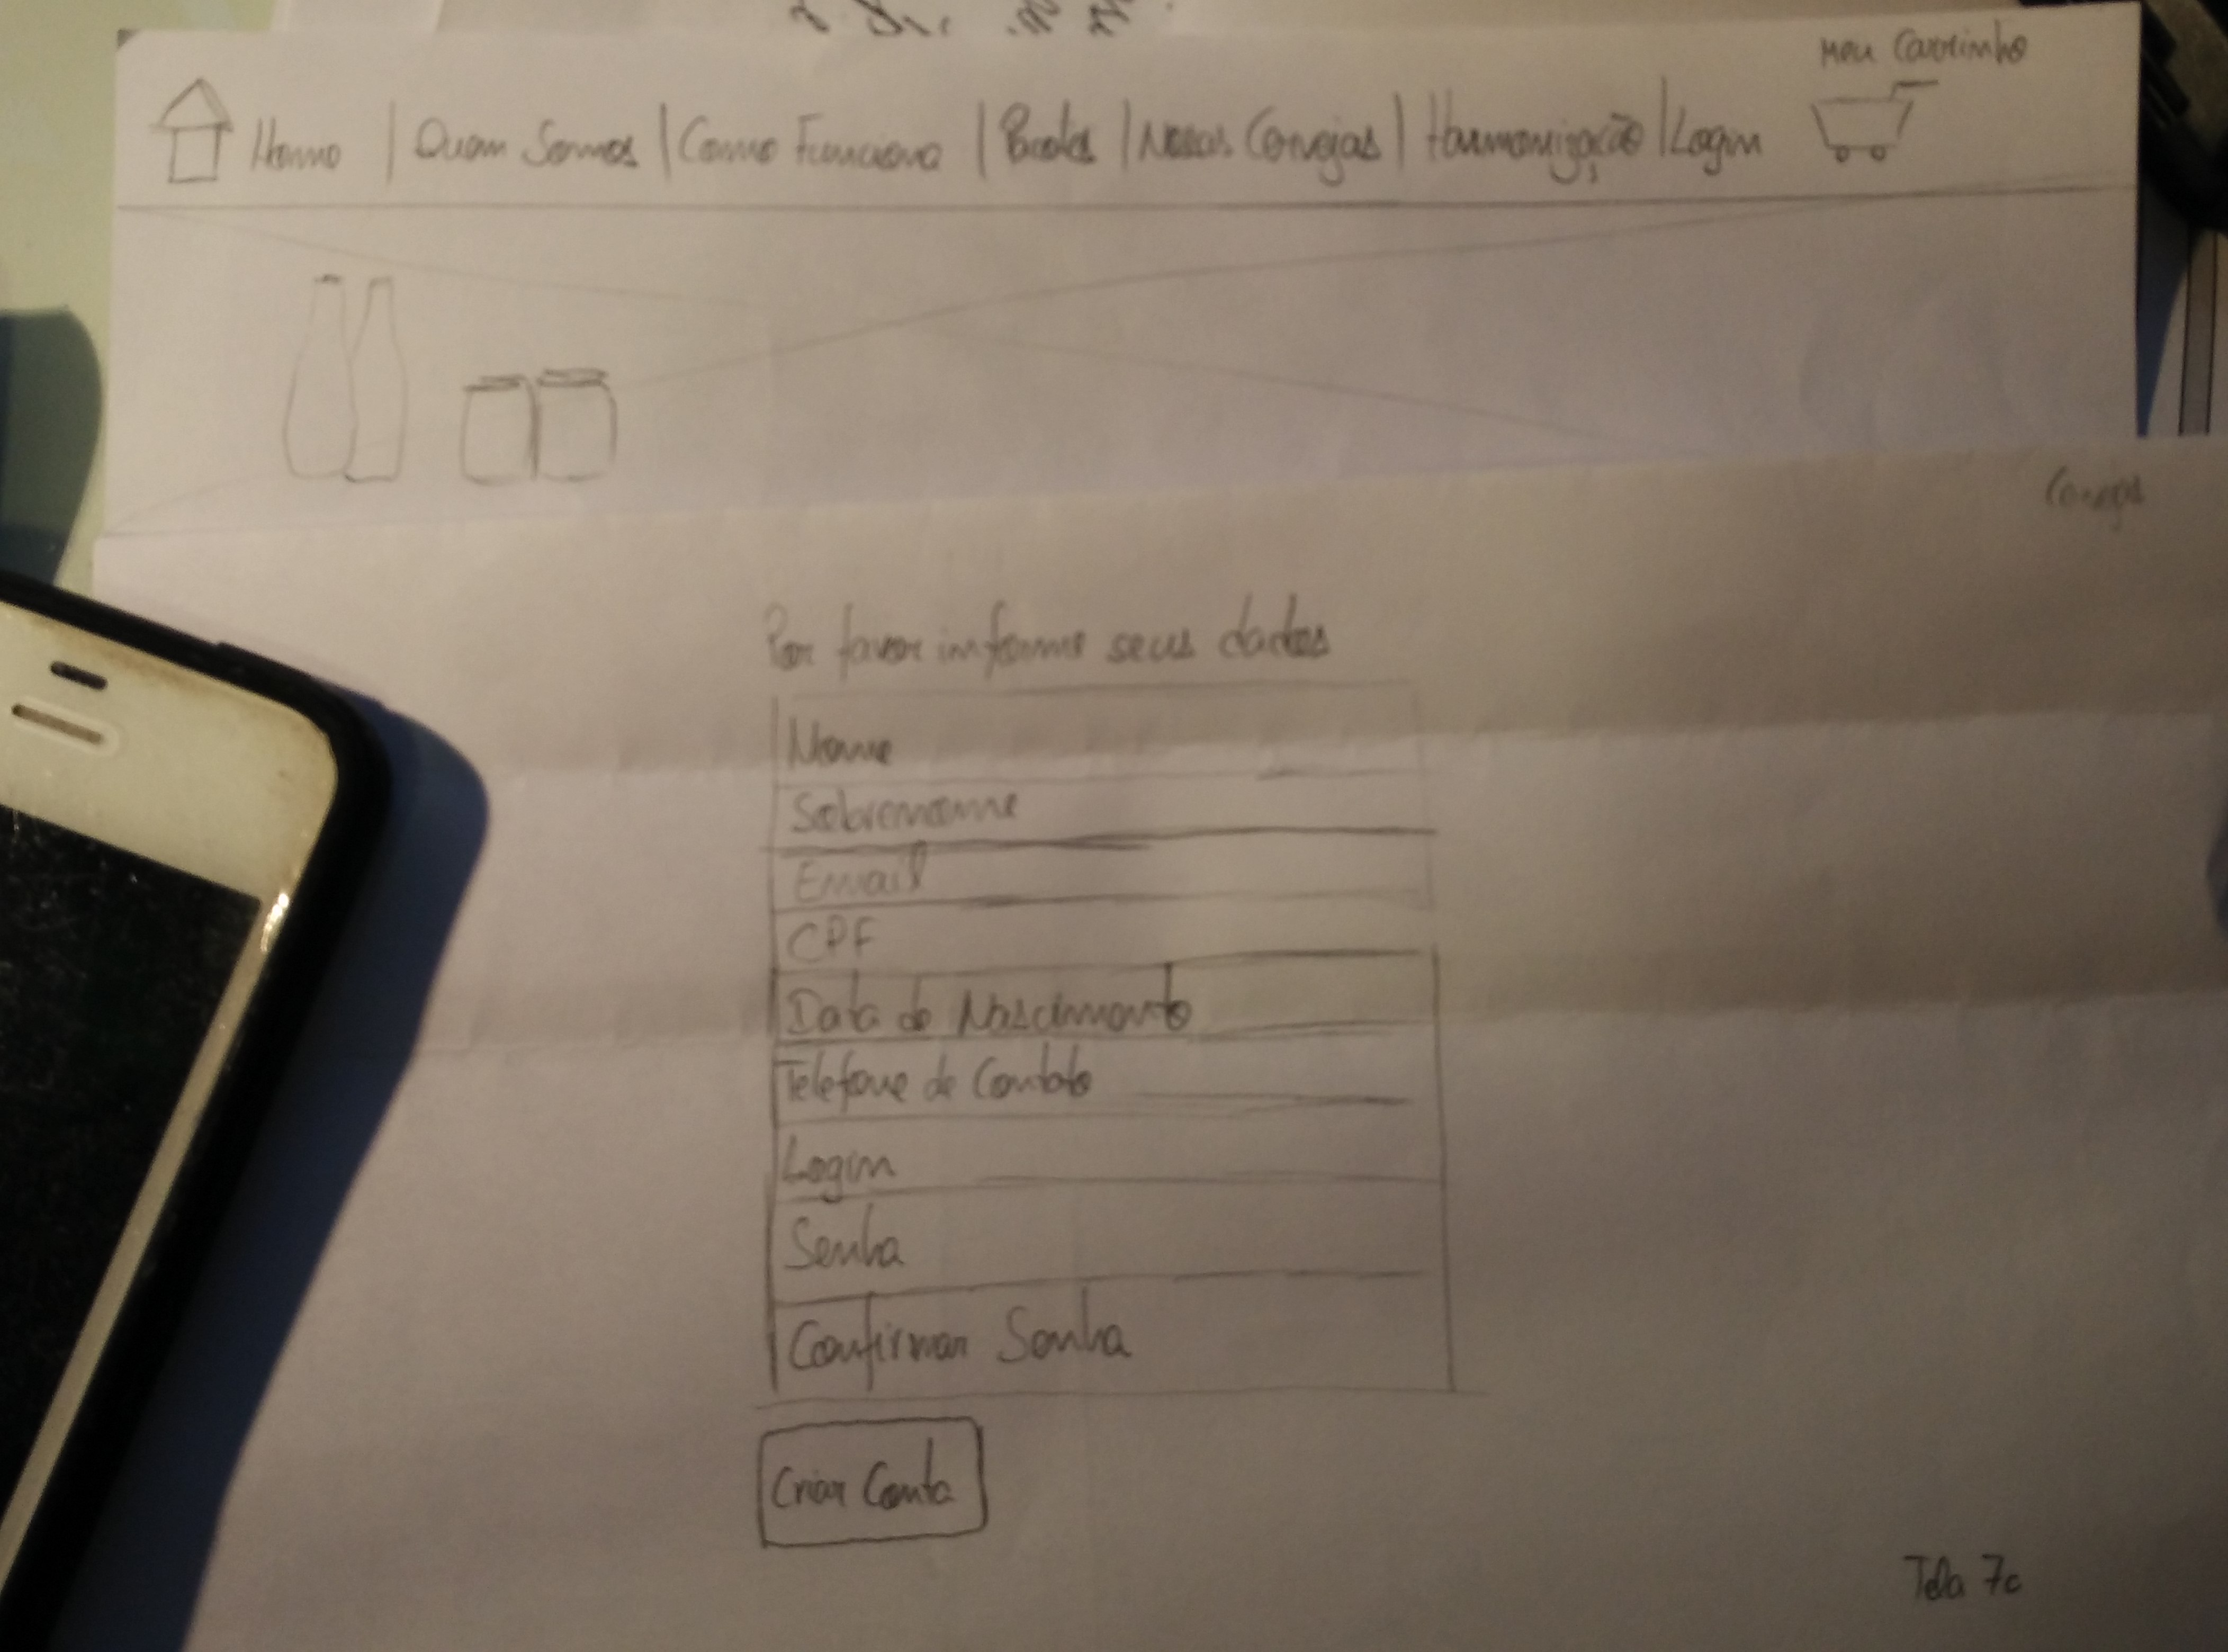 Meu Carrinho
Home | Quem Somos | Como Funciona | Pacotes | Nossas Cervejas | Harmonização | Login
Cervejas
Por favor informe seus dados
Nome
Sobrenome
Email
CPF
Data de Nascimento
Telefone de Contato
Login
Senha
Confirmar Senha
Criar Conta
Tela 7c